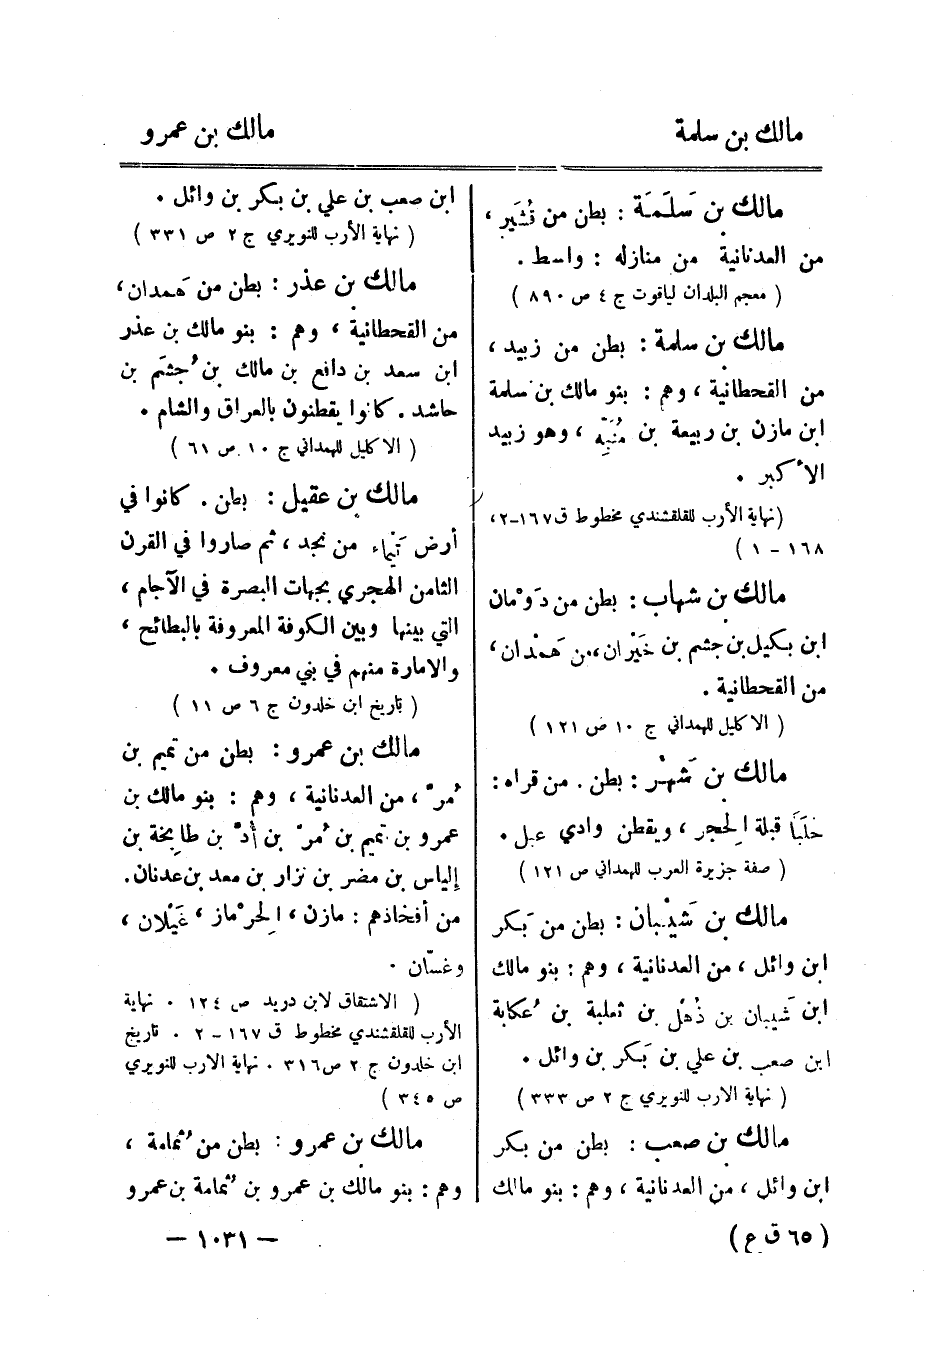 مالك بن سلمة
مالك بن عمرو
مالك بن سَلَمَة : بطن من قُشَير ،
من العدنانية من منازله : واسط .
( معجم البلدان لياقوت ج ٤ ص ٨٩٠ )
مالك بن سلمة : بطن من زبيد ،
من القحطانية ، وهم : بنو مالك بن سلمة
ابن مازن بن ربيعة بن مُنَبِّه ، وهو زبيد
الأكبر .
(نهاية الأرب للقلقشندي مخطوط ق ١٦٧-٢،
١٦٨ - ١ )
مالك بن شهاب : بطن من دَوْمان
ابن بكيل بن جشم بن خَيْران ، من هَمْدان ،
من القحطانية .
( الاكليل للهمداني ج ١٠ ص ١٢١ )
مالك بن شَهْر : بطن . من قراه :
خلَبَا قبلة الحِجر ، ويقطن وادي عبل .
( صفة جزيرة العرب للهمداني ص ١٢١ )
مالك بن شَيْبان : بطن من بَكر
ابن وائل ، من العدنانية ، وهم : بنو مالك
ابن شَيبان بن ذُهْل بن ثعلبة بن عُكابة
ابن صعب بن علي بن بَكر بن وائل .
( نهاية الارب للنويري ج ٢ ص ٣٣٣ )
مالك بن صعب : بطن من بكر
ابن وائل ، من العدنانية ، وهم : بنو مالك
ابن صعب بن علي بن بكر بن وائل .
( نهاية الأرب للنويري ج ٢ ص ٣٣١ )
مالك بن عذر : بطن من هَمدان ،
من القحطانية ، وهم : بنو مالك بن عذر
ابن سعد بن دافع بن مالك بن جُشَم بن
حاشد . كانوا يقطنون بالعراق والشام .
( الاكليل للهمداني ج ١٠ ص ٦١ )
مالك بن عقيل : بطن . كانوا في
أرض تَيْماء من نجد ، ثم صاروا في القرن
الثامن الهجري بجهات البصرة في الآجام ،
التي بينها وبين الكوفة المعروفة بالبطائح ،
والامارة منهم في بني معروف .
( تاريخ ابن خلدون ج ٦ ص ١١ )
مالك بن عمرو : بطن من تميم بن
مُرّ ، من العدنانية ، وهم : بنو مالك بن
عمرو بن تميم بن مُرّ بن أُدّ بن طابِخة بن
إلياس بن مضر بن نزار بن معد بن عدنان.
من أفخاذهم : مازن ، الحِرْماز ، غَيْلان ،
وغسّان .
( الاشتقاق لابن دريد ص ١٢٤ . نهاية
الأرب للقلقشندي مخطوط ق ١٦٧ - ٢ . تاريخ
ابن خلدون ج ٢ ص ٣١٦ . نهاية الارب للنويري
ص ٣٤٥ )
مالك بن عمرو : بطن من ثُمامة ،
وهم : بنو مالك بن عمرو بن ثُمامة بن عمرو
( ٦٥ ق ع )
— ١٠٣١ —